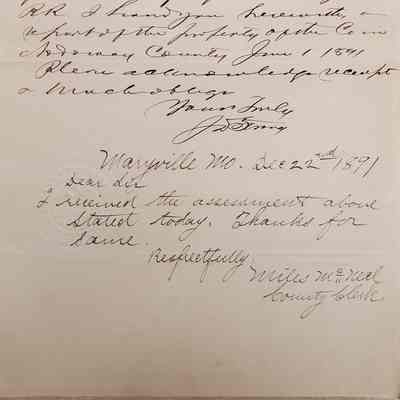 RR I hand you herewith a
report of the property of the Com
Nodaway County June 1 1891
Please acknowledge receipt
& much oblige
Yours Truly
Maryville Mo. Dec 22nd 1891
Dear Sir
I received the assessment above
stated today. Thanks for
Same.
Respectfully
Miles McNeal
County Clerk